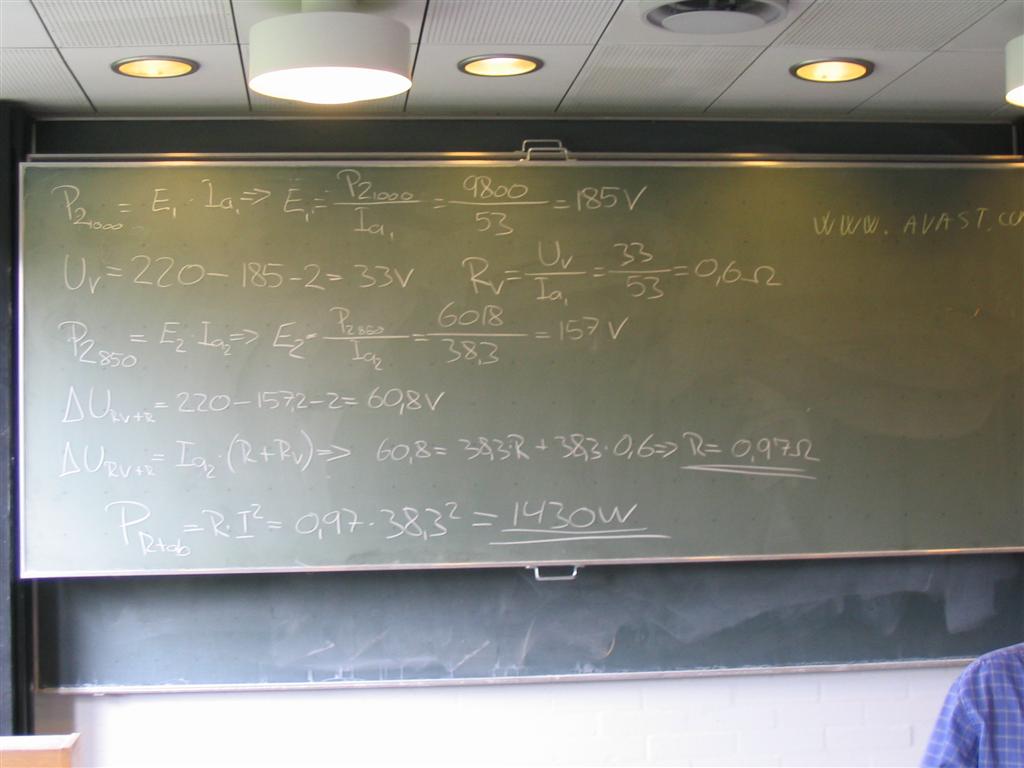 P₂₁₀₀₀ = E₁ · Ia₁ => E₁ = P₂₁₀₀₀ / Ia₁ = 9800 / 53 = 185V
WWW.AVAST.CO
Uv = 220 - 185 - 2 = 33V Rv = Uv / Ia₁ = 33 / 53 = 0,6Ω
P₂₈₅₀ = E₂ · Ia₂ => E₂ = P₂₈₅₀ / Ia₂ = 6018 / 38,3 = 157, V
ΔU_RV+R = 220 - 157,2 - 2 = 60,8V
ΔU_RV+R = Ia₂ · (R + Rv) => 60,8 = 38,3·R + 38,3·0,6 => R = 0,97Ω
P_Rtab = R·I² = 0,97 · 38,3² = 1430W